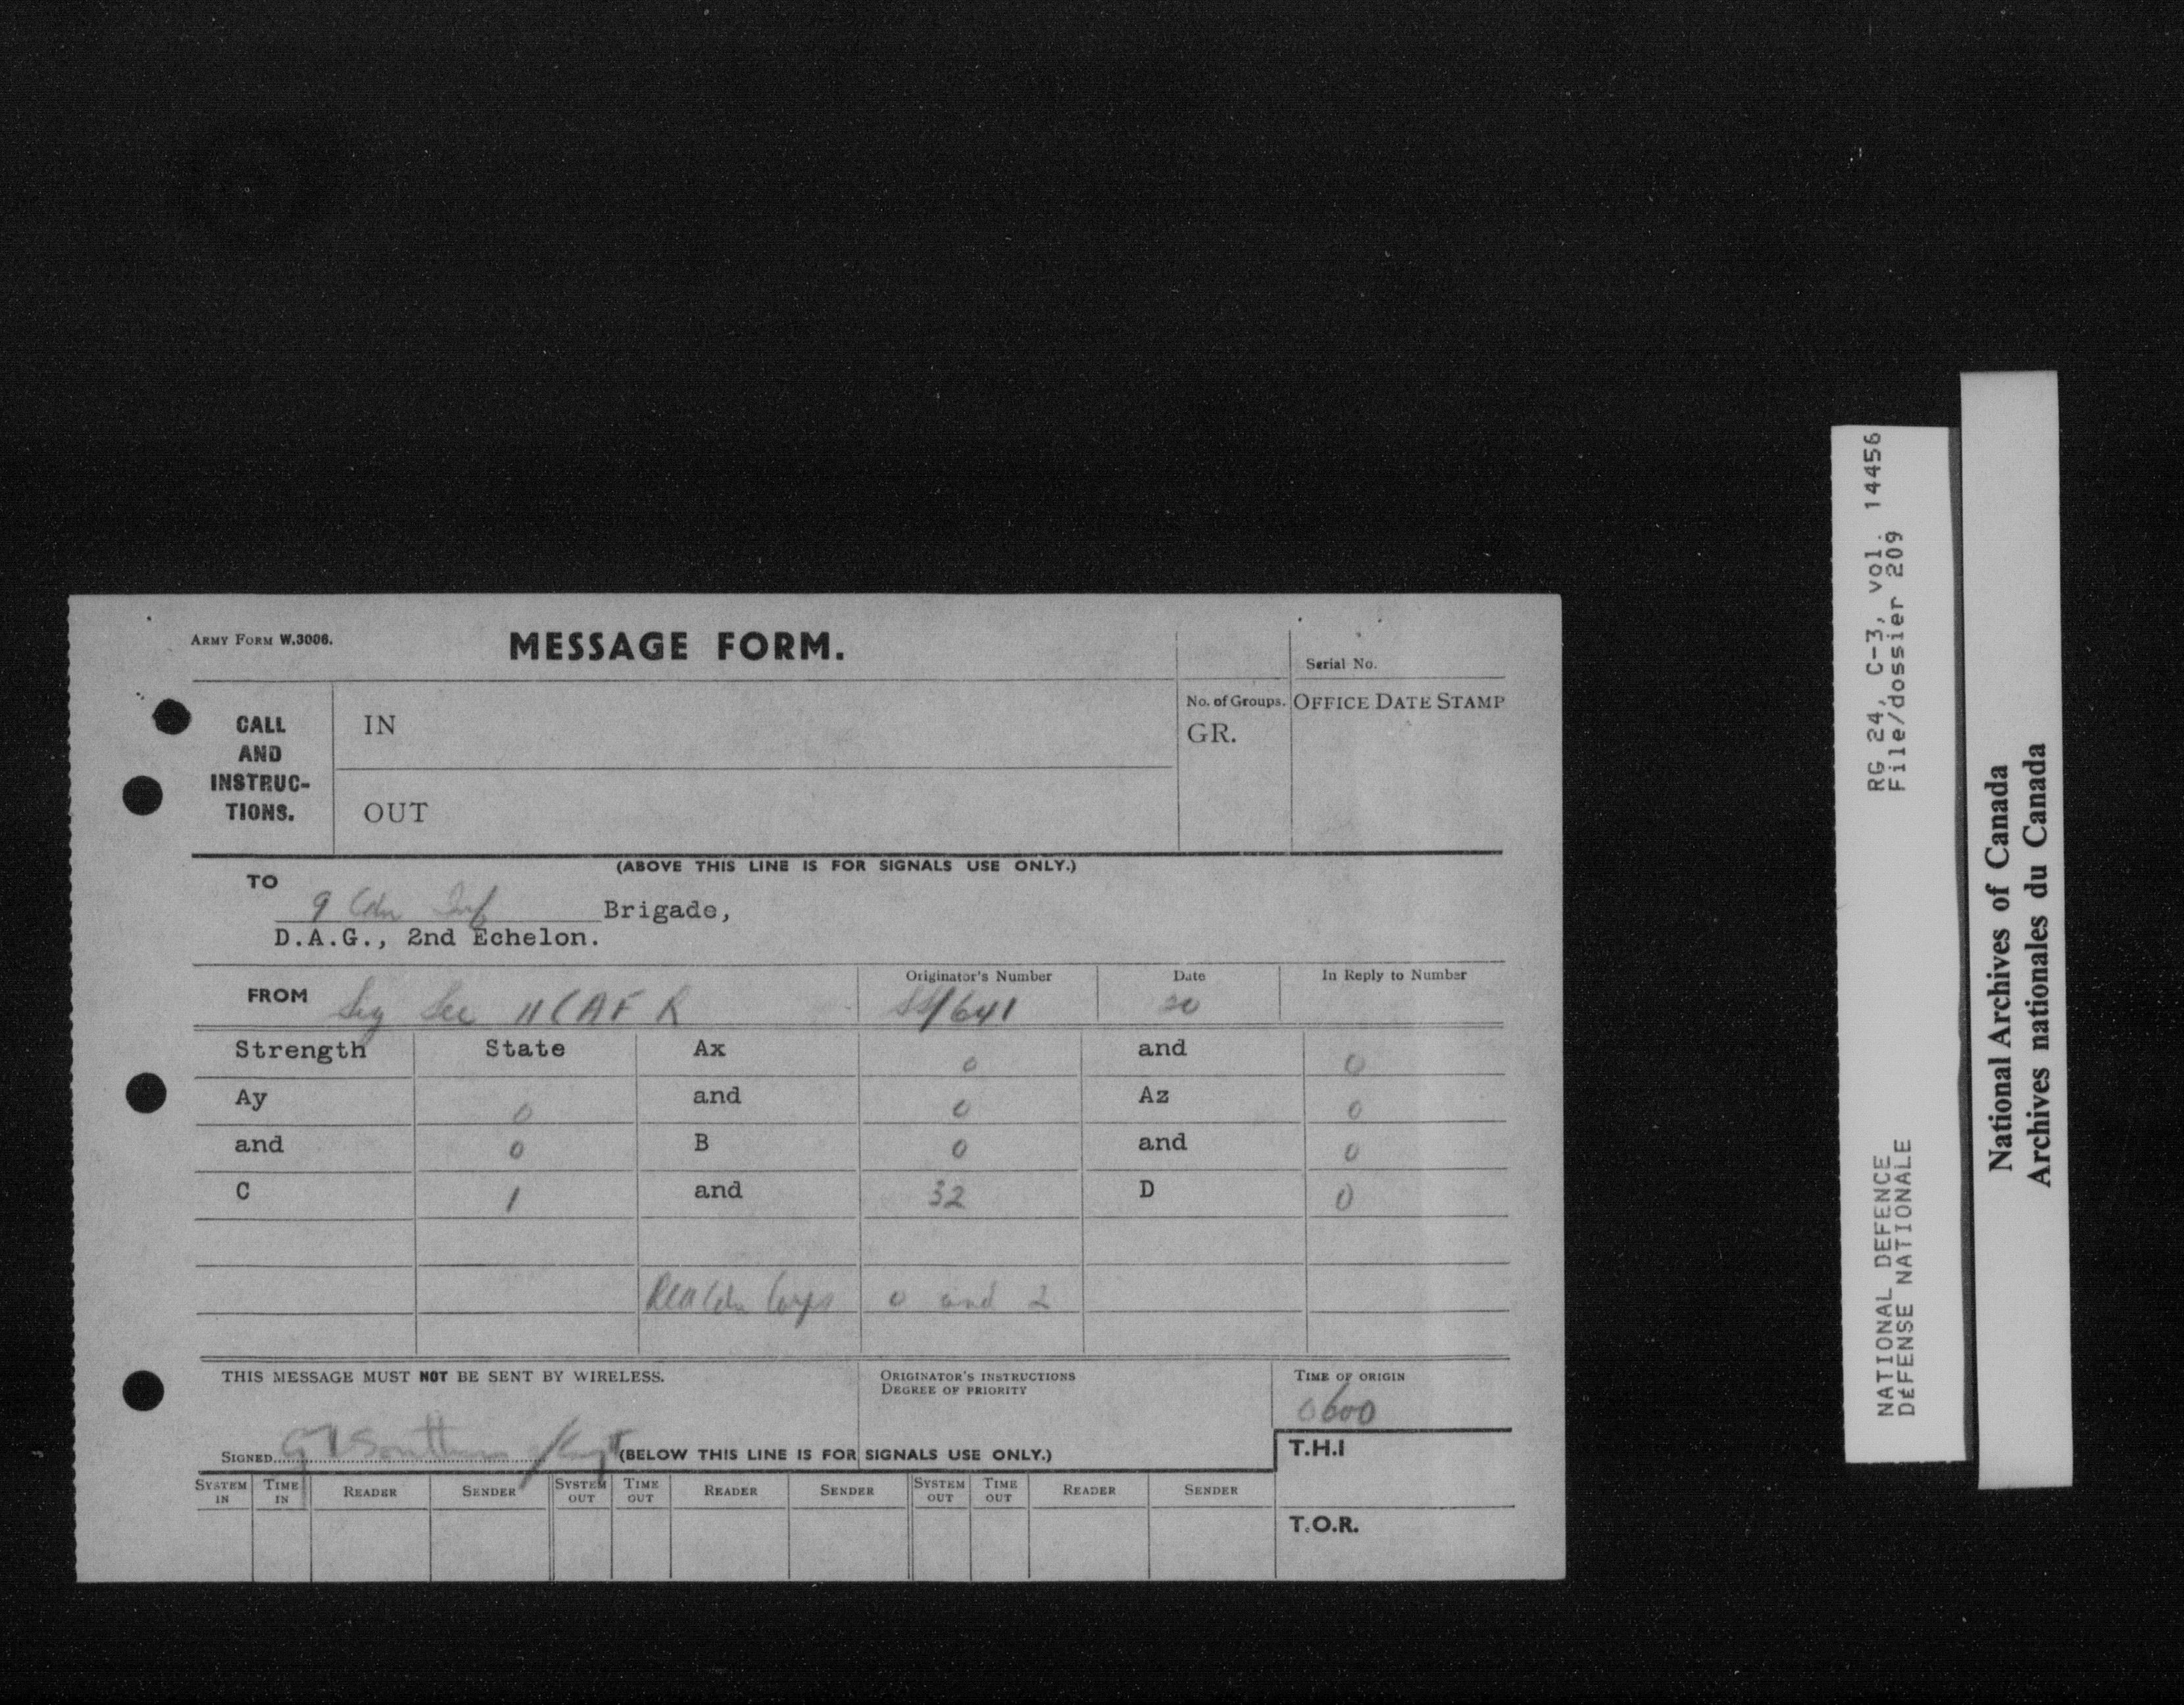 ARMY FORM W.3006.
MESSAGE FORM.
Serial No.
CALL AND INSTRUC-TIONS.
IN
OUT
No. of Groups.
GR.
OFFICE DATE STAMP
(ABOVE THIS LINE IS FOR SIGNALS USE ONLY.)
TO
9 Cdn Inf Brigade,
D.A.G., 2nd Echelon.
FROM Sig Sec 11 CAFR
Originator's Number
/641
Date
In Reply to Number
Strength State Ax 0 and 0
Ay 0 and 0 Az 0
and 0 B 0 and 0
C 1 and 32 D 0
Cdn Corps 0 and 2
THIS MESSAGE MUST NOT BE SENT BY WIRELESS.
ORIGINATOR'S INSTRUCTIONS
DEGREE OF PRIORITY
TIME OF ORIGIN
0600
SIGNED
(BELOW THIS LINE IS FOR SIGNALS USE ONLY.)
T.H.I
SYSTEM IN TIME IN READER SENDER SYSTEM OUT TIME OUT READER SENDER SYSTEM OUT TIME OUT READER SENDER
T.O.R.
NATIONAL DEFENCE RG 24, C-3, vol. 14456
DÉFENSE NATIONALE File/dossier 209
National Archives of Canada
Archives nationales du Canada